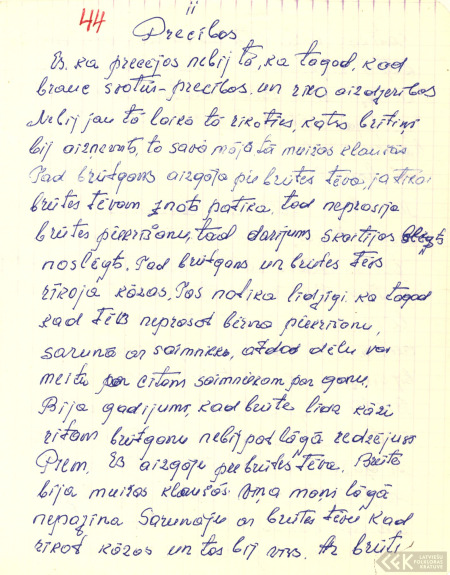 44
ii
Precības
Es, ka precējos nebij tā, ka tagad, kad
brauc svotūs-precības, un rīko aizdzeršbos
Nebij jau tā laika tā rīkoties, katrs brītiņš
bij aizņemts, to savā mājā tā muižas klaušās
Tad brūtgans aizgāja pie brūtes tēva, ja tika
brūtes tēvam znots patika, tad neprasīja
brūtes piekrišanu, tad darījums skaitījas
noslēgts. Tad brūtgans un brūtes tēvs
rīkoja kāzas. Tas notika līdzīgi ka tagad
kad tēvs neprasot bērna piekrišanu,
sarunā ar saimnieku, atdod dēlu vai
meitu par citam saimniekam par ganu.
Bija gadījums, kad brūte līdz kāzu
rītam brūtganu nebij pat lāgā redzējuse
Piem. Es aizgāju pie brūtes tēva. Brūte
bija muižas klaušās. Viņa mani lāgā
nepazina Sarunāju ar brūtes tēvu kad
rīkot kāzas un tas bij viss. Ar brūti
LATVIEŠU FOLKLORAS KRĀTUVE